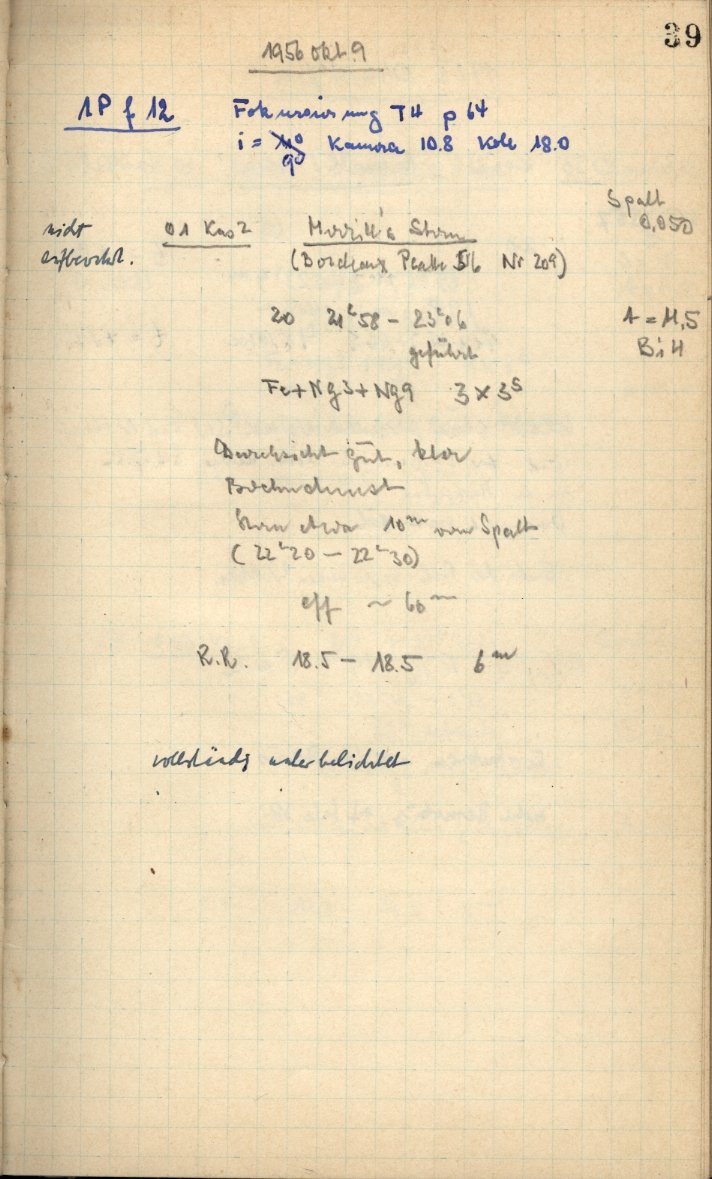 39
1956 Okt. 9
1P f 12
Fokussierung TH p 64
i = 90 Kamera 10.8 Koll 18.0
Spalt
0,050
nicht
aufbewahrt.
01 Kas 2
Merrill's Stern
(Bordeaux Perthe 516 Nr 209)
20 21ʰ58 – 23ʰ06
t = 11,5
geführt
BiH
Fe+Ng3+Ng9 3 × 3ˢ
Durchsicht gut, klar
Bodendunst
Stern etwa 10ᵐ vom Spalt
(22ʰ20 – 22ʰ30)
eff ~ 60ᵐ
R.R. 18.5 – 18.5 6ᵐ
vollständig unterbelichtet